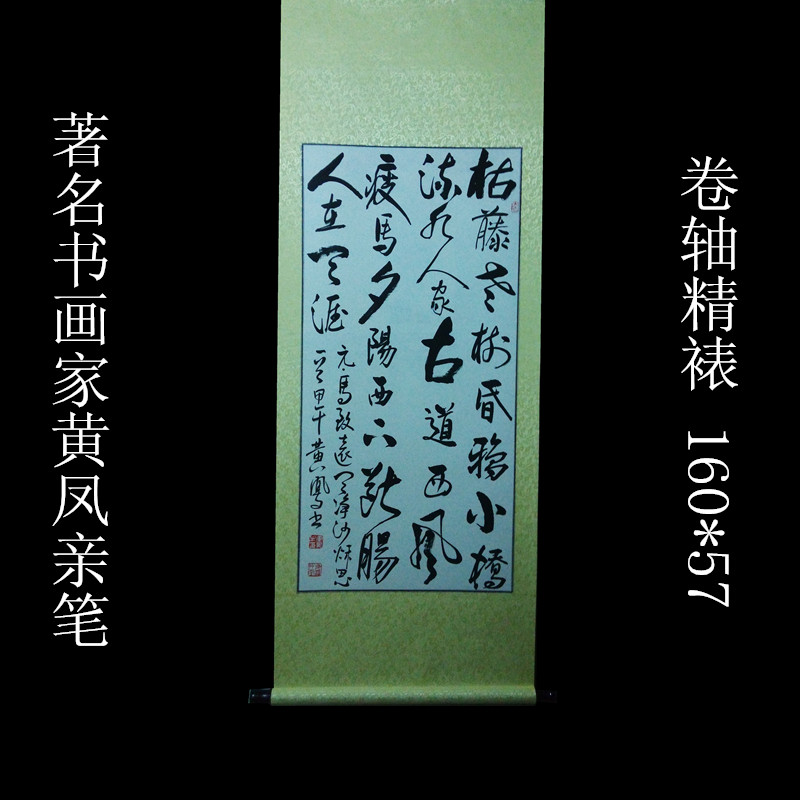 著名书画家黄凤亲笔
卷轴精裱 160*57
枯藤老树昏鸦小橋
流水人家古道西風
瘦馬夕陽西下斷腸
人在天涯
元馬致遠天淨沙秋思
甲午黄鳳书